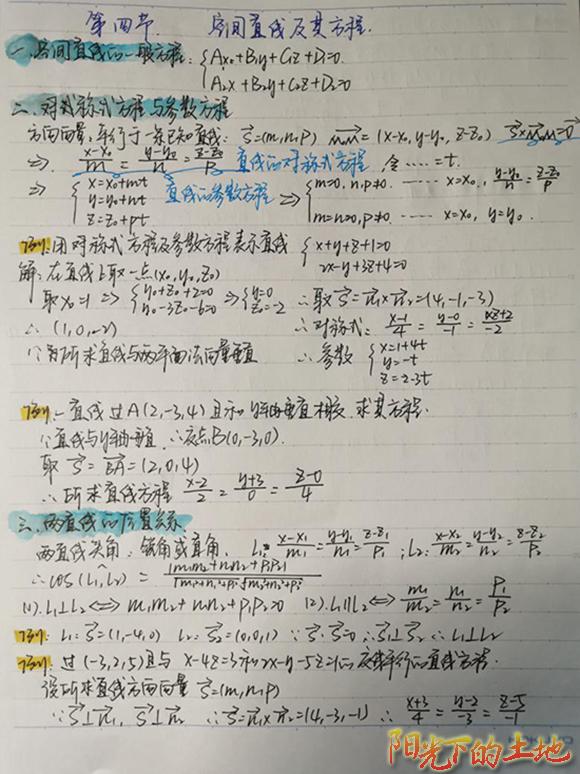 第四节. 空间直线及其方程.
一、空间直线的一般方程: {A₁x+B₁y+C₁z+D₁=0. A₂x+B₂y+C₂z+D₂=0.
二、对称式方程与参数方程
方向向量, 平行于一条已知直线: s⃗=(m,n,p) M₀M⃗=(x-x₀, y-y₀, z-z₀) s⃗×M₀M⃗=0⃗
⇒ (x-x₀)/m = (y-y₀)/n = (z-z₀)/p 直线的对称式方程, 令……=t.
⇒ {x=x₀+mt y=y₀+nt z=z₀+pt 直线的参数方程 ⇒ {m=0, n,p≠0. …… x=x₀, (y-y₀)/n=(z-z₀)/p m=n=0, p≠0. …… x=x₀, y=y₀.
例1. 用对称式方程及参数方程表示直线 {x+y+z+1=0 2x-y+3z+4=0
解: 在直线上取一点(x₀,y₀,z₀)
取x₀=1 ⇒ {y₀+z₀+2=0 y₀-3z₀-6=0 ⇒ {y₀=0 z₀=-2 ∴取s⃗=n₁⃗×n₂⃗=(4,-1,-3)
∴ (1,0,-2) ∴对称式: (x-1)/4 = (y-0)/-1 = (z+2)/-2
∵所求直线与两平面法向量垂直 ∴参数 {x=1+4t y=-t z=-2-3t
例1. 一直线过A(2,-3,4)且和y轴垂直相交, 求其方程.
∵直线与y轴垂直 ∴交点B(0,-3,0).
取 s⃗=BA⃗=(2,0,4)
∴所求直线方程 (x-2)/2 = (y+3)/0 = (z-0)/4
三、两直线的位置关系
两直线夹角: 锐角或直角. L₁: (x-x₁)/m₁=(y-y₁)/n₁=(z-z₁)/p₁; L₂: (x-x₂)/m₂=(y-y₂)/n₂=(z-z₂)/p₂
∴cos(L₁,L₂) = |m₁m₂+n₁n₂+p₁p₂|/(√m₁²+n₁²+p₁² √m₂²+n₂²+p₂²)
(1). L₁⊥L₂⇔m₁m₂+n₁n₂+p₁p₂=0 (2). L₁∥L₂⇔m₁/m₂=n₁/n₂=p₁/p₂
例1. L₁: s₁⃗=(1,-4,0) L₂: s₂⃗=(0,0,1) ∵s₁⃗·s₂⃗=0 ∴s₁⃗⊥s₂⃗ ∴L₁⊥L₂
例1. 过(-3,2,5)且与x-4z=3和2x-y-5z=1的交线平行的直线方程.
设所求直线方向向量 s⃗=(m,n,p)
∵s⃗⊥n₁⃗, s⃗⊥n₂⃗ ∴s⃗=n₁⃗×n₂⃗=(4,-3,-1) ∴ (x+3)/4=(y-2)/-3=(z-5)/-1
阳光下的土地